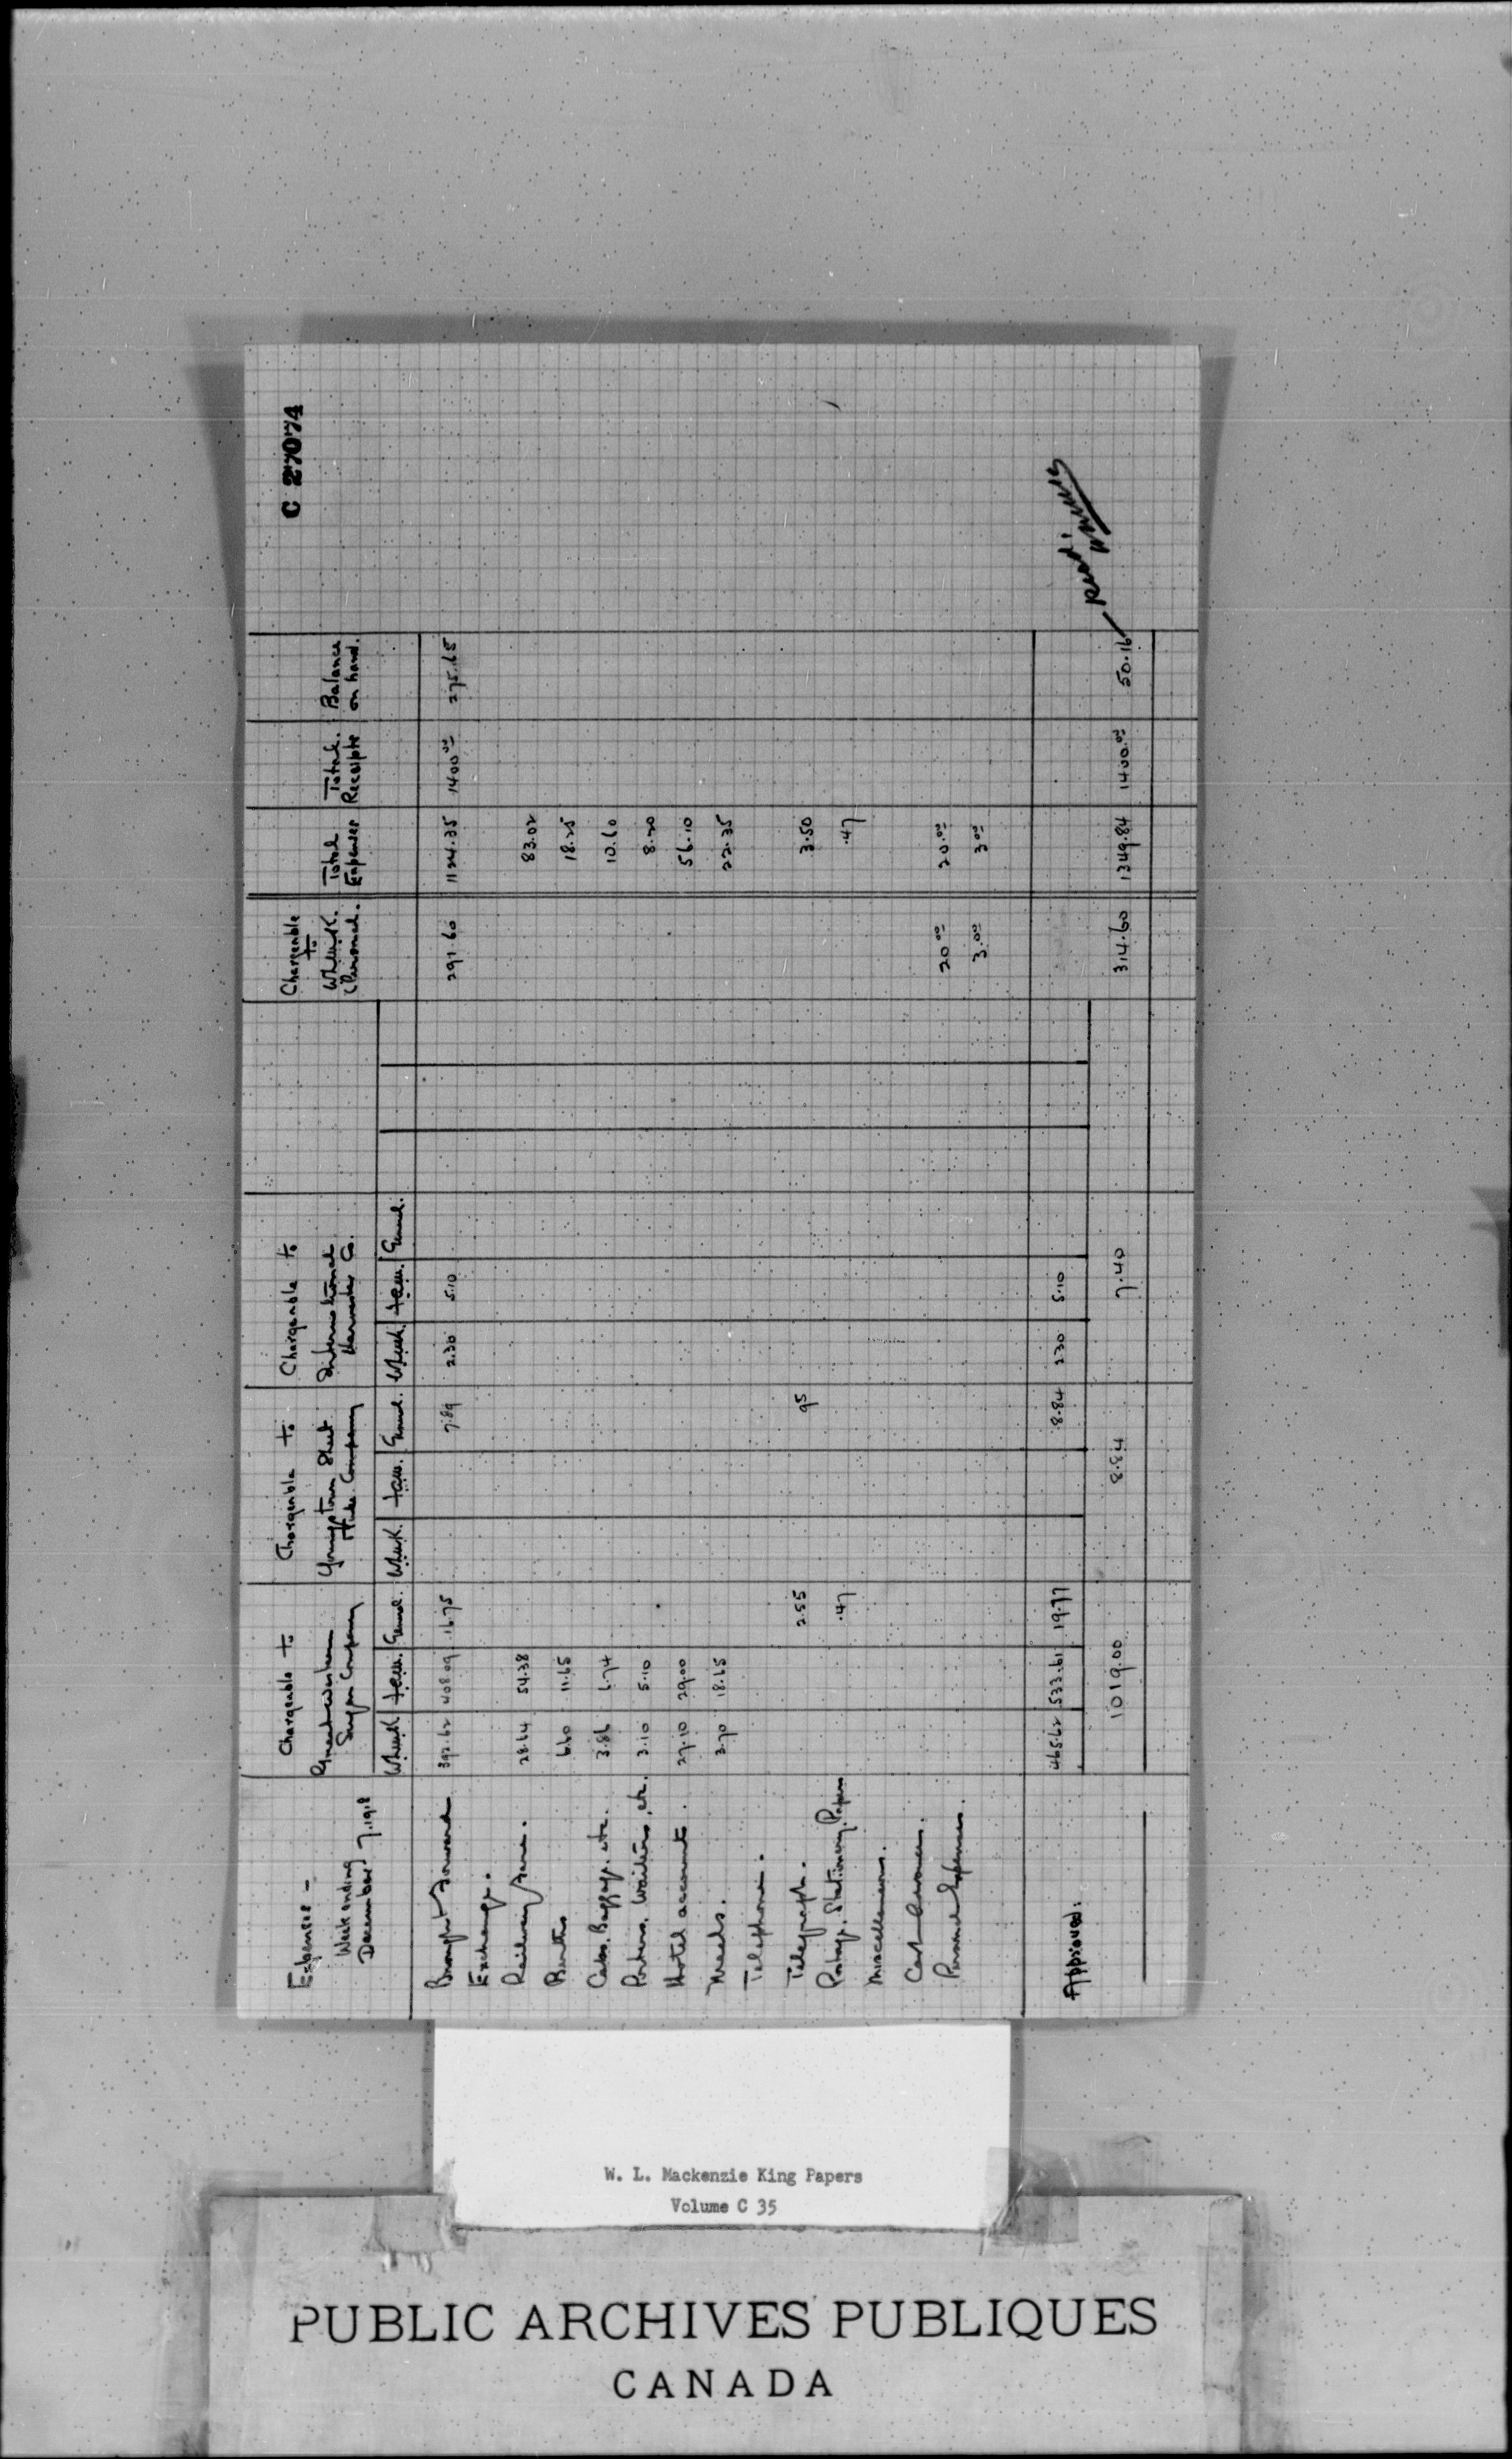 C 27074
Expenses -
Week ending
December 7, 1918
Chargeable to
Great Western
Sugar Company
Chargeable to
Youngstown Sheet
& Tube Company
Chargeable to
International
Harvester Co.
Chargeable
to
W.L.M.K.
(Personal.
Total
Expenses
Total
Receipts
Balance
on hand.
W.L.M.K. F.A.M. Genrl. W.L.M.K. F.A.M. Genrl. W.L.M.K. F.A.M. Genrl.
Brought Forward 392.62 408.09 16.75 7.89 2.30 5.10 291.60 1124.35 1400.00 275.65
Exchange.
Railway Fare. 28.64 54.38 83.02
Berths 6.60 11.65 18.25
Cabs. Baggage. etc. 3.86 6.74 10.60
Porters. Waiters, etc. 3.10 5.10 8.20
Hotel accounts. 27.10 29.00 56.10
Meals. 3.70 18.65 22.35
Telephone.
Telegraph. 2.55 95 3.50
Postage. Stationery. Papers .47 .47
Miscellaneous.
Cash Advances. 20.00 20.00
Personal Expenses. 3.00 3.00
Approved: 465.62 533.61 19.77 8.84 2.30 5.10
1019.00 8.84 7.40 314.60 1349.84 1400.00 50.16
W. L. Mackenzie King Papers
Volume C 35
PUBLIC ARCHIVES PUBLIQUES
CANADA